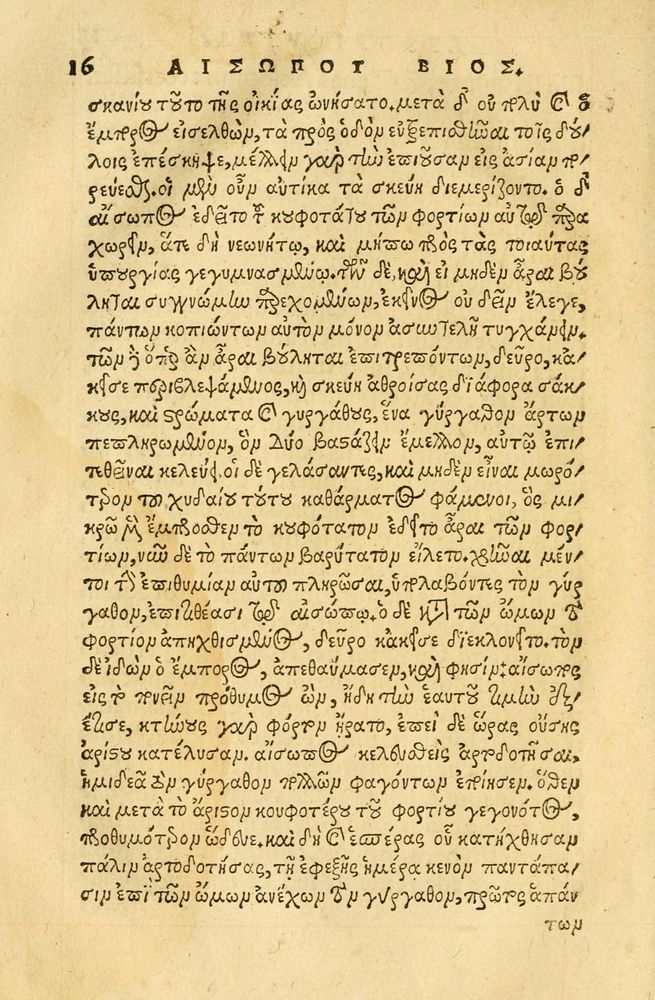 16 ΑΙΣΩΠΟΥ ΒΙΟΣ.
σκανίου τοῦτο τῆς οἰκίας ὠνήσατο. μετὰ δ' οὐ πολὺ καὶ ὁ
ἔμπορος εἰσελθὼν, τὰ πρὸς ὁδὸν εὐξεπισθῆναι τοῖς δού/
λοις ἐπέσκηψε, μέλλειν γὰρ τὴν ἐπιοῦσαν εἰς ἀσίαν πο/
ρεύεσθαι. οἱ μὲν οὖν αὐτίκα τὰ σκεύη διεμερίζοντο. ὁ δ'
αἴσωπος ἐδεῖτο τὸ κουφότατον τῶν φορτίων αὐτῷ παρα
χωρεῖν, ἅτε δὴ νεωνήτῳ, καὶ μήπω πρὸς τὰς τοιαύτας
ὑπουργίας γεγυμνασμένῳ. τῶν δὲ, καὶ εἰ μηδὲν ἆραι βού
ληται συγγνώμην παρεχομένων, ἐκεῖνος οὐ δεῖν ἔλεγε,
πάντων κοπιώντων αὐτὸν μόνον ἀσυντελῆ τυγχάνειν.
τῶν δ' ὅπερ ἂν ἆραι βούληται ἐπιτρεπόντων, δεῦρο, κἀ/
κεῖσε περιβλεψάμενος, καὶ σκεύη ἀθροίσας διάφορα σάκ/
κους, καὶ στρώματα καὶ γυργάθους, ἕνα γύργαθον ἄρτων
πεπληρωμένον, ὃν δύο βαστάζειν ἔμελλον, αὐτῷ ἐπι/
τεθεῖναι κελεύει. οἱ δὲ γελάσαντες, καὶ μηδὲν εἶναι μωρό/
τερον τοῦ χυδαίου τούτου καθάρματος φάμενοι, ὃς μι/
κρῷ μὲν ἔμπροσθεν τὸ κουφότατον ἐδεῖτο ἆραι τῶν φορ/
τίων, νῦν δὲ τὸ πάντων βαρύτατον εἵλετο. χρῆναι μέν/
τοι τὴν ἐπιθυμίαν αὐτοῦ πληρῶσαι, ὑπολαβόντες τὸν γύρ
γαθον, ἐπιτιθέασι τῷ αἰσώπῳ. ὁ δὲ κατὰ τῶν ὤμων τὸ
φορτίον ἀπηχθισμένος, δεῦρο κἀκεῖσε διεκλονεῖτο. τὸν
δὲ ἰδὼν ὁ ἔμπορος, ἀπεθαύμασεν, καὶ φησίν· αἴσωπος
εἰς τὸ πονεῖν πρόθυμος ὢν, ἤδη τὴν ἑαυτοῦ τιμὴν ἐξ/
έτισε, κτήνους γὰρ φόρτον ἤρατο, ἐπεὶ δὲ ὥρας οὔσης
ἀρίστου κατέλυσαν. αἴσωπος κελευσθεὶς ἀρτοδοτῆσαι,
ἡμιδεᾶ τὸν γύργαθον πολλῶν φαγόντων ἐποίησεν. ὅθεν
καὶ μετὰ τὸ ἄριστον κουφοτέρου τοῦ φορτίου γεγονότος,
προθυμότερον ὥδευε. καὶ δὴ καὶ ἑσπέρας οὗ κατήχθησαν
πάλιν ἀρτοδοτήσας, τῇ ἐφεξῆς ἡμέρᾳ κενὸν παντάπα/
σιν ἐπὶ τῶν ὤμων ἀνέχων τὸν γύργαθον, πρῶτος ἁπάν
των